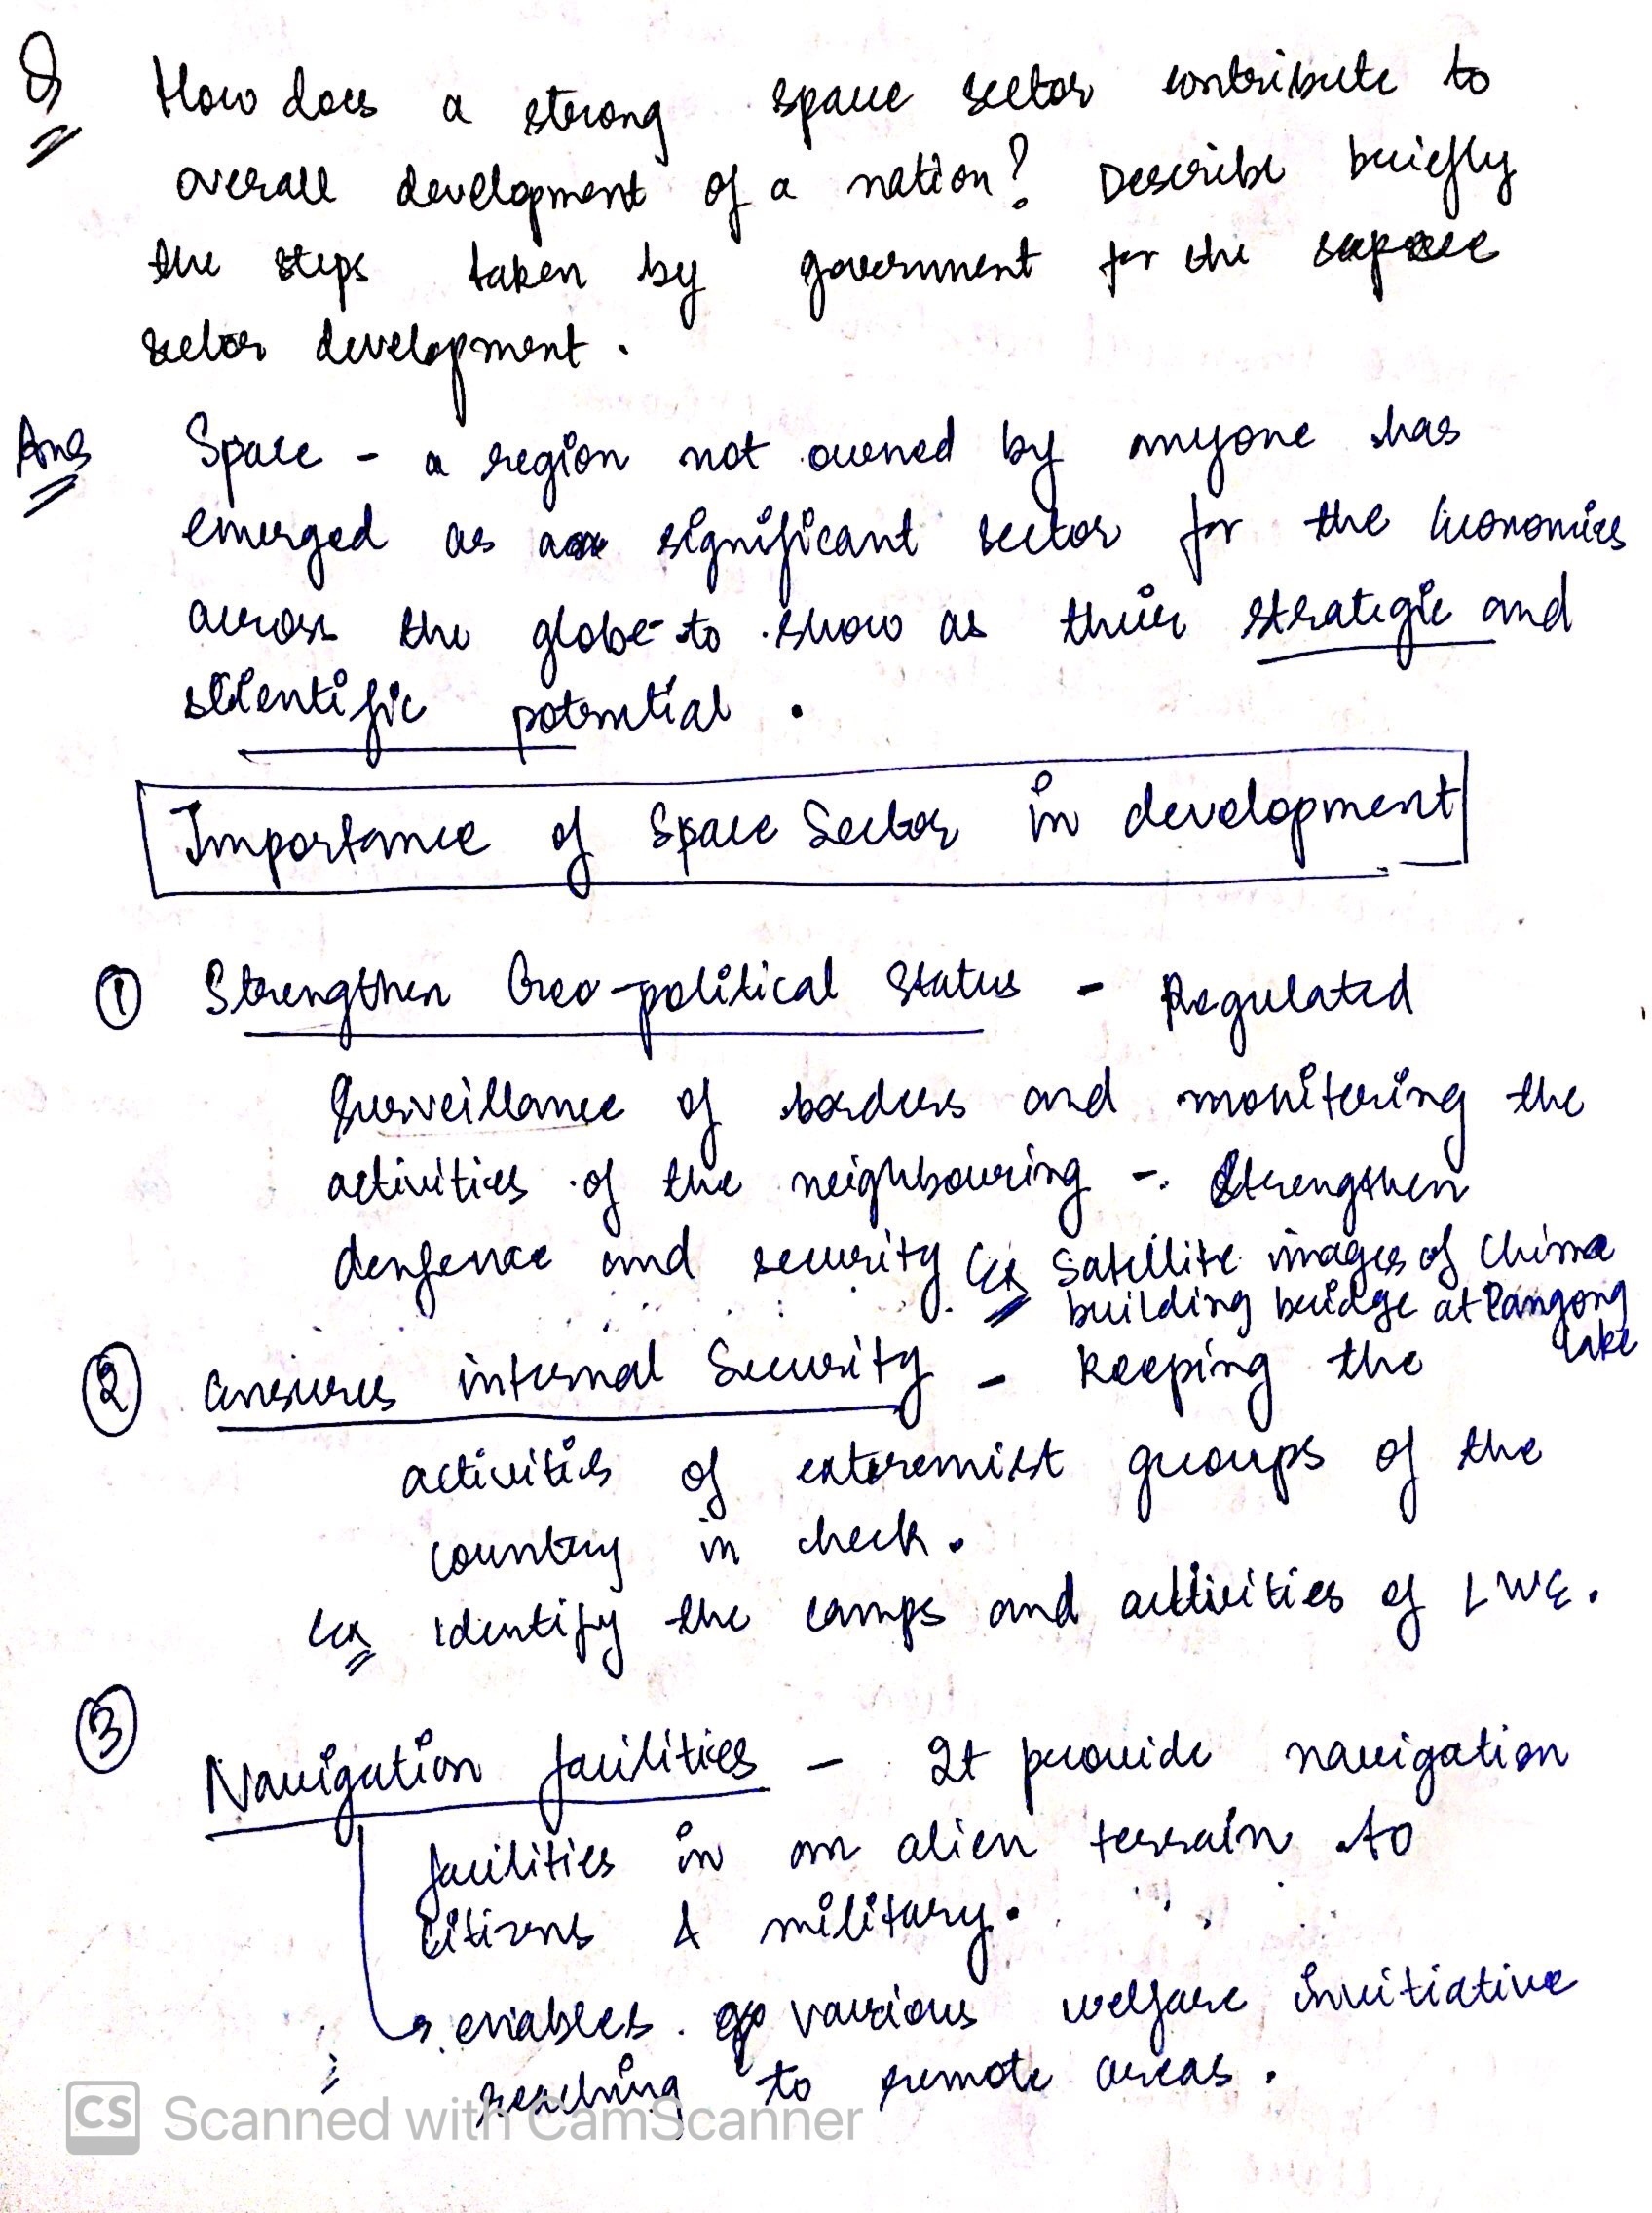 Q How does a strong space sector contribute to
overall development of a nation? Describe briefly
the steps taken by government for the
sector development.
Ans Space - a region not owned by anyone has
emerged as a significant sector for the economies
across the globe to show as their strategic and
scientific potential.
Importance of Space Sector in development
① Strengthen Geo-political Status - Regulated
Surveillance of borders and monitoring the
activities of the neighbouring - Strengthen
denfence and security Ex Satellite images of China
building bridge at Pangong
lake
② ensures internal Security - Keeping the
activities of extremist groups of the
country in check.
Ex identify the camps and activities of LWE.
③ Navigation facilities - It provide navigation
facilities in an alien terrain to
citizens & military.
→ enables various welfare initiative
reaching to remote areas.
CS Scanned with CamScanner